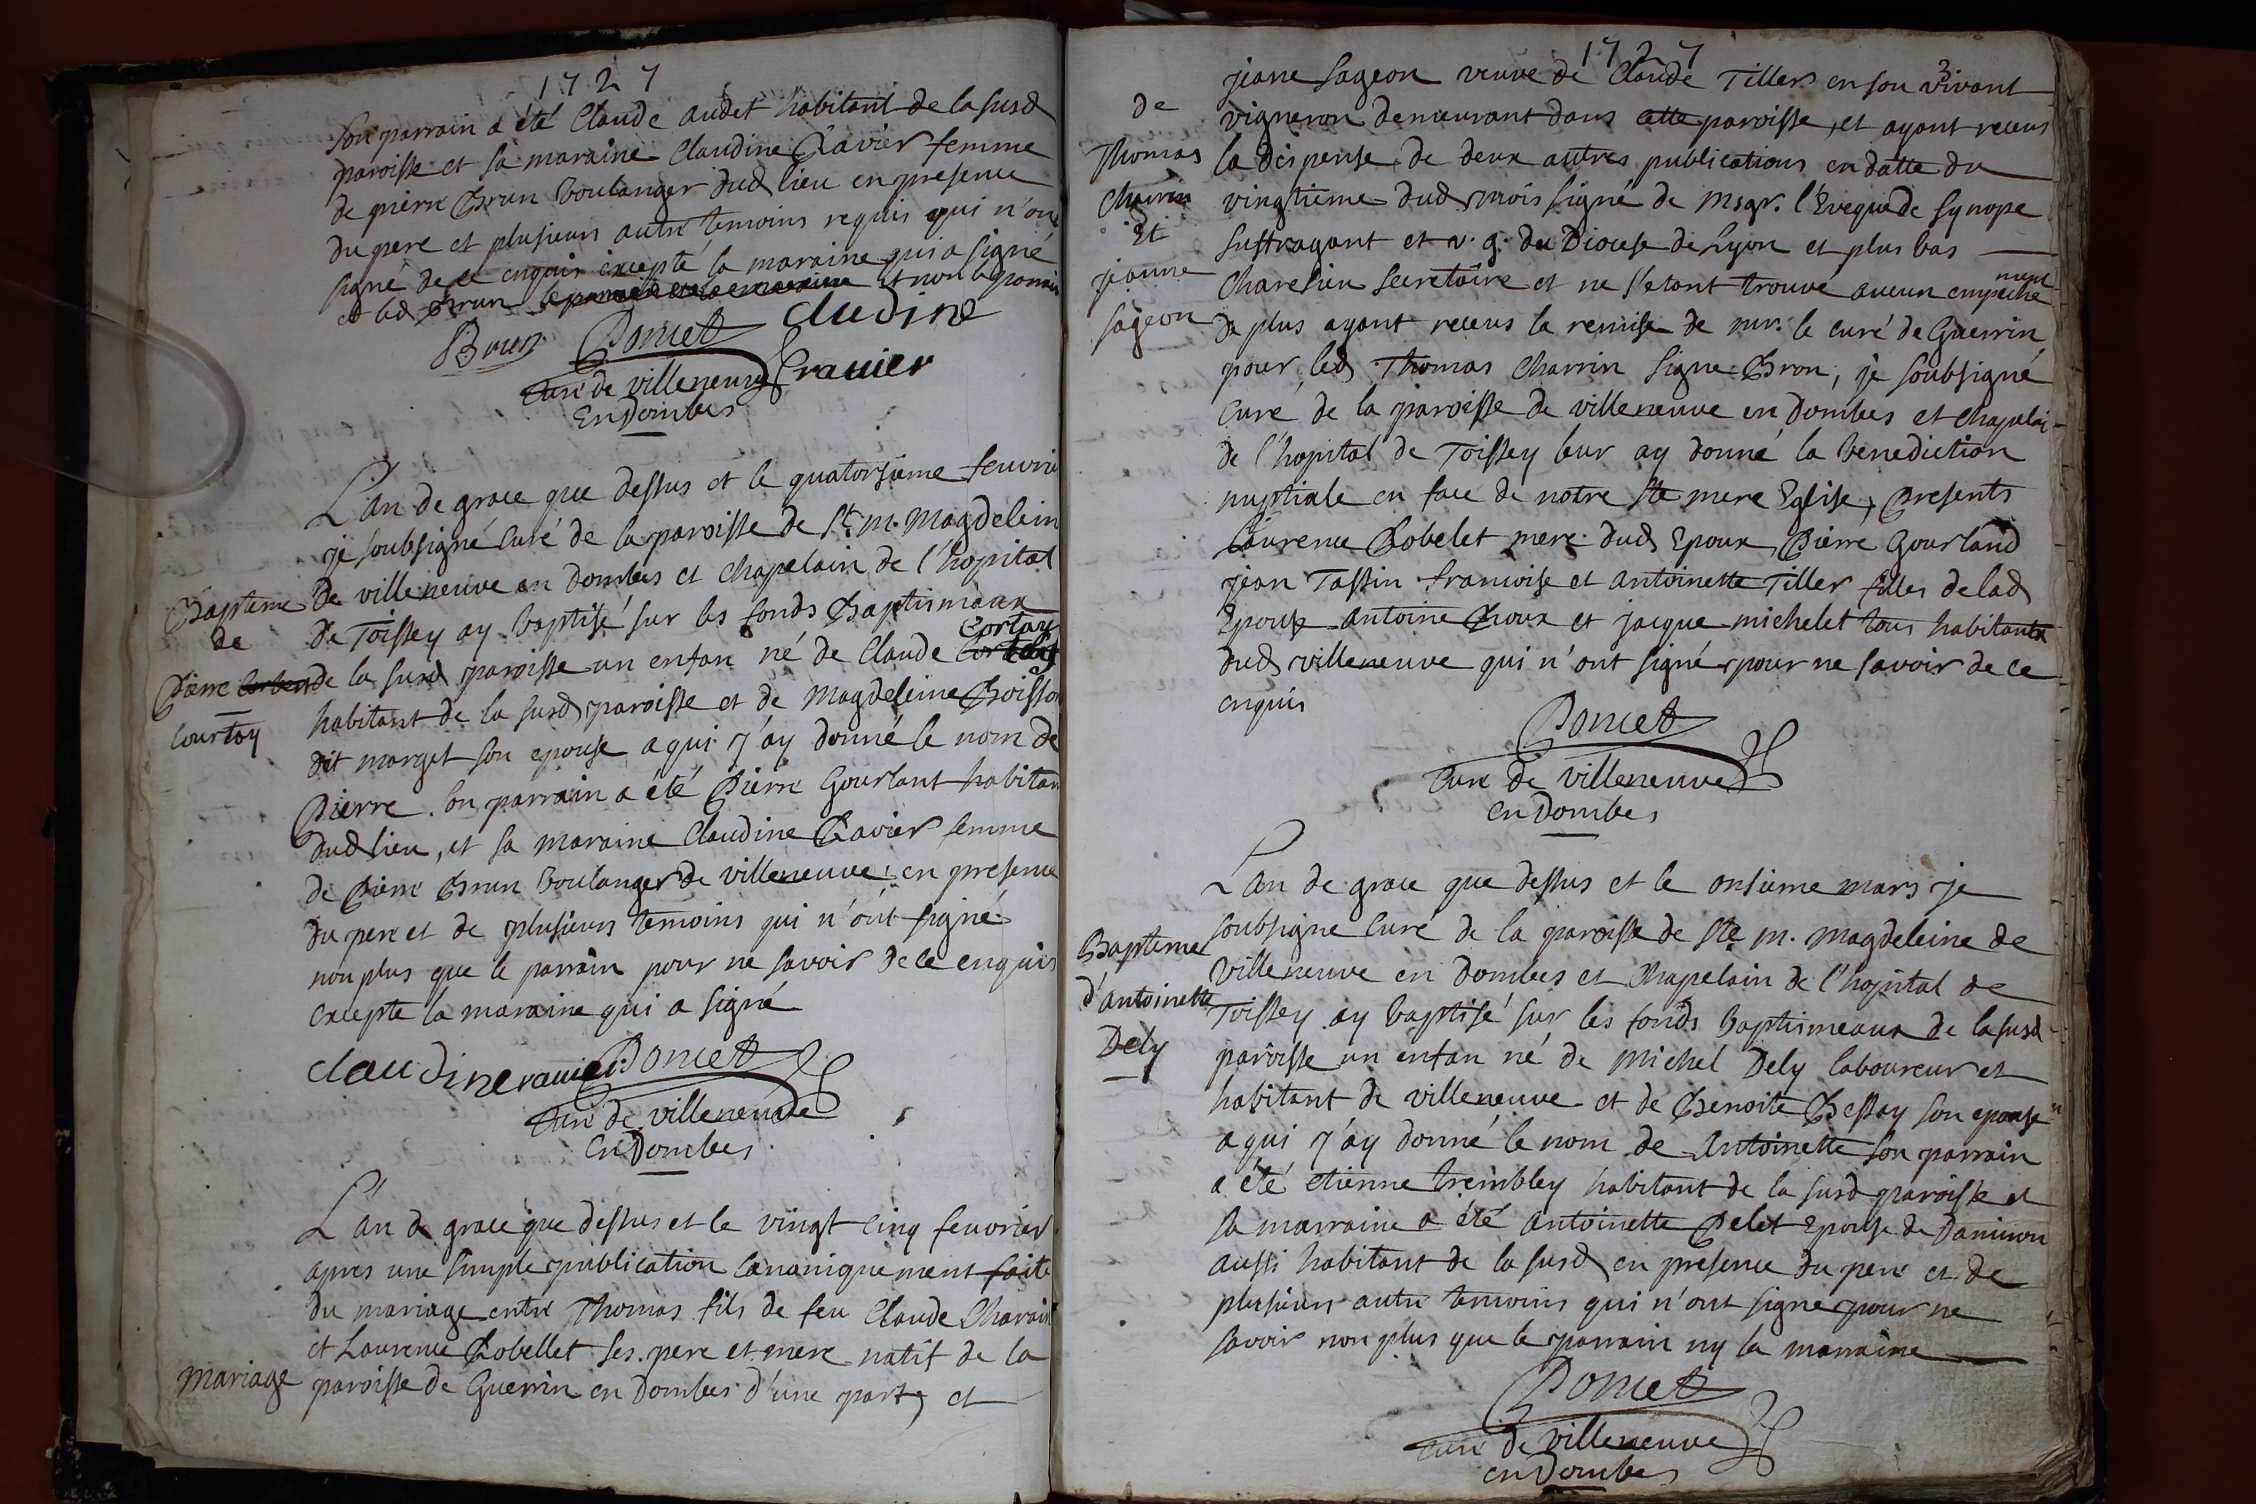 1727
son parrain a été Claude audet habitant de la susd
paroisse et sa maraine Claudine Ravier femme
de pierre Brun boulanger dud lieu en presence
du pere et plusieurs autre temoins requis qui n'ont
signé de ce enquis excepté la maraine qui a signé
et led Brun et non le parrain
Brun Poncet Claudine
Curé de villeneuve Ravier
En Dombes
L'an de grace que dessus et le quatorsieme feuvrie
je soubsigné Curé de la paroisse de Ste m. Magdelein
Bapteme De villeneuve en Dombes et chapelain de l'hopital
de De Toissey ay baptisé sur les fonds Baptismaux
Cortay
Pierre de la susd paroisse un enfan né de Claude
Courtoy habitant de la susd paroisse et de Magdeleine Boisson
dit marget son epouse a qui j'ay donné le nom de
Pierre. son parrain a été Pierre Gourlant habitan
dud lieu, et sa maraine Claudine Ravier femme
de Pierre Brun boulanger de villeneuve en presence
du pere et de plusieurs temoins qui n'ont signé
non plus que le parrain pour ne savoir de ce enquis
excepte la maraine qui a signé
claudine ravier Poncet
Curé de villeneuve
En Dombes
L'an de grace que dessus et le vingt cinq feuvrier
apres une simple publication canoniquement faite
du mariage entre Thomas fils de feu Claude Charrin
et Laurence Robellet ses pere et mere natif de la
Mariage paroisse de Guerrin en Dombes d'une part, et
1727
3
jeane sageon veuve de Claude Tiller en son vivant
de vigneron demeurant dans cette paroisse, et ayant receus
Thomas la dispense de deux autres publications en datte du
Charrin vingtieme dud mois signé de Msgr. l'Eveque de Synope
Et suffragant et v. g. du Diocese de Lyon et plus bas
jeanne secretaire et ne s'etant trouvé aucun empechement
sageon de plus ayant receus la remise de mr. le curé de Guerrin
pour led Thomas Charrin signe Bron, je soubsigné
Curé de la paroisse de villeneuve en Dombes et chapelai-
de l'hopital de Toissey leur ay donné la benediction
nuptiale en face de notre Ste mere Eglise, Presents
Laurence Robelet mere dud Epoux Pierre Gourland
jean Tassin francoise et antoinette Tiller filles de lad
Epouse antoine Roux et jacque michelet tous habitants
dud villeneuve qui n'ont signé pour ne savoir de ce
enquis
Poncet
Curé de villeneuve
en Dombes
L'an de grace que dessus et le onsieme mars je
soubsigne Curé de la paroisse de Ste m. magdeleine de
Bapteme villeneuve en Dombes et Chapelain de l'hopital de
d'antoinette Toissey ay baptisé sur les fonds Baptismeaux de la susd
Dely paroisse un enfan né de Michel Dely laboureur et
habitant de villeneuve et de Benoite Bessay son epouse
a qui j'ay donné le nom de Antoinette son parrain
a été etienne trembley habitant de la susd paroisse et
sa marraine a été antoinette Pelet Epouse de
aussi habitant de la susd en presence du pere et de
plusieurs autre temoins qui n'ont signe pour ne
savoir non plus que le parrain ny la marraine
Poncet
Curé de villeneuve
en Dombes